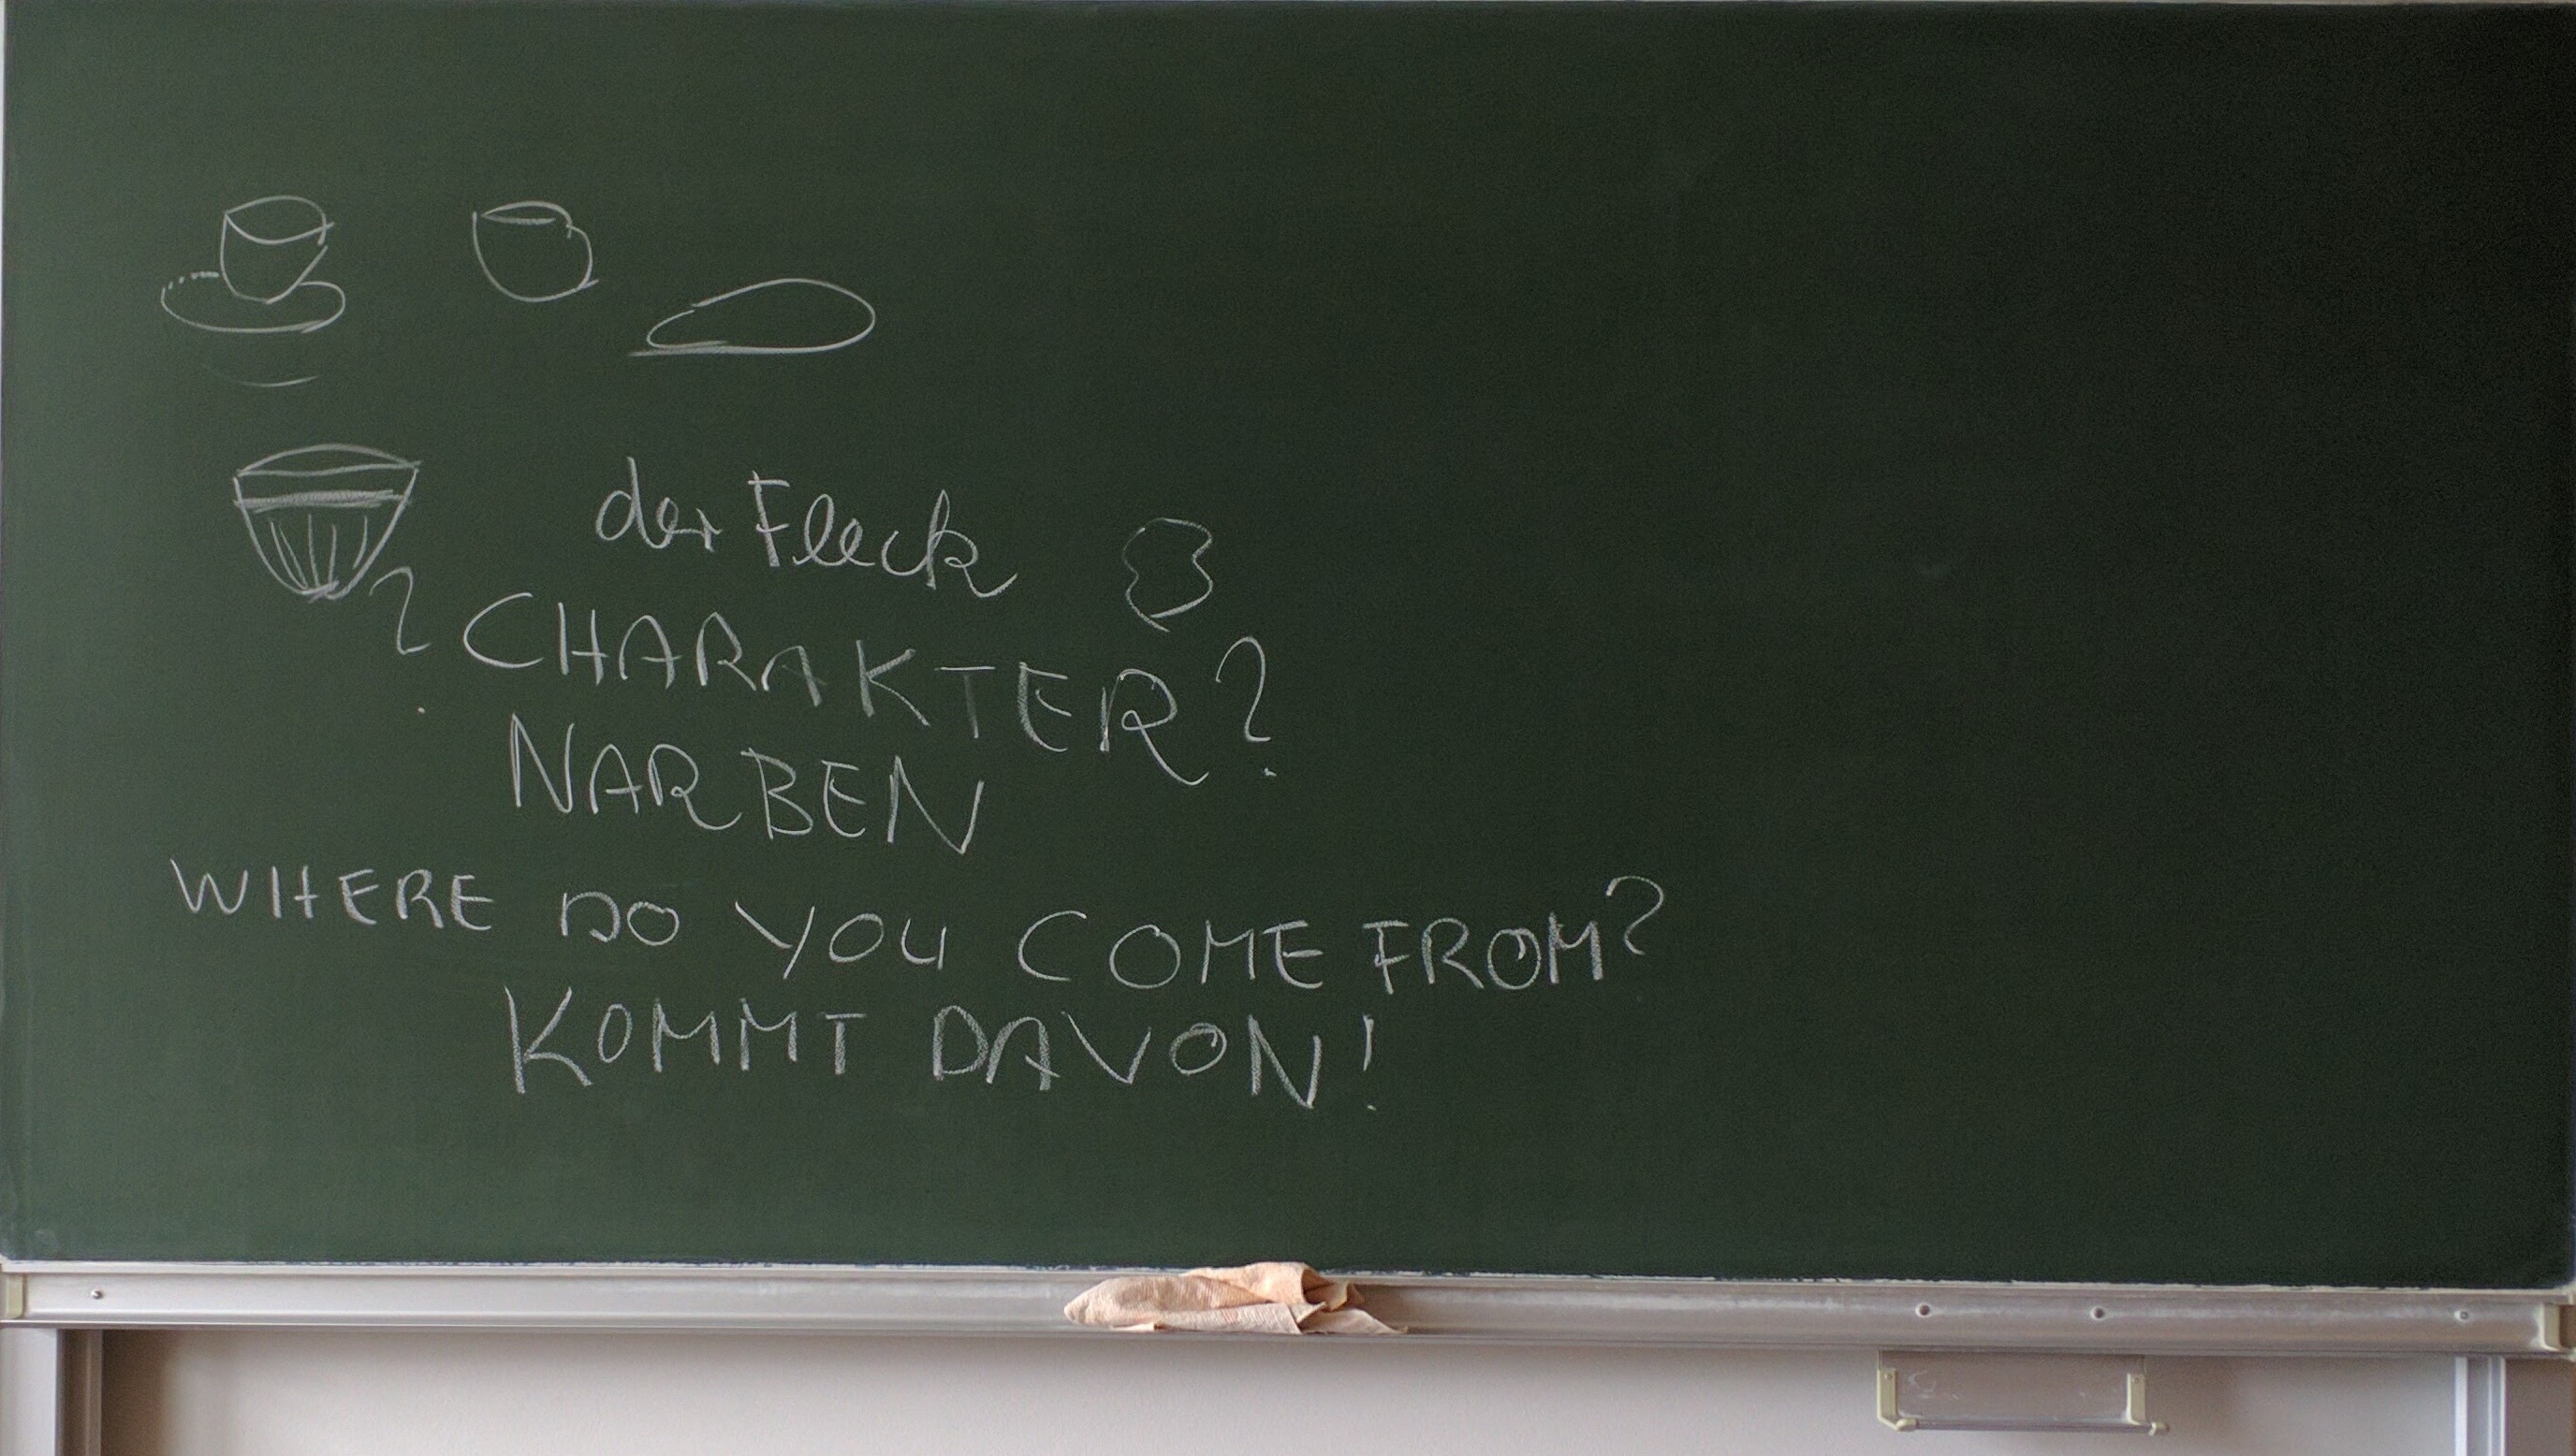 der Fleck
? CHARAKTER?
NARBEN
WHERE DO YOU COME FROM?
KOMMT DAVON!